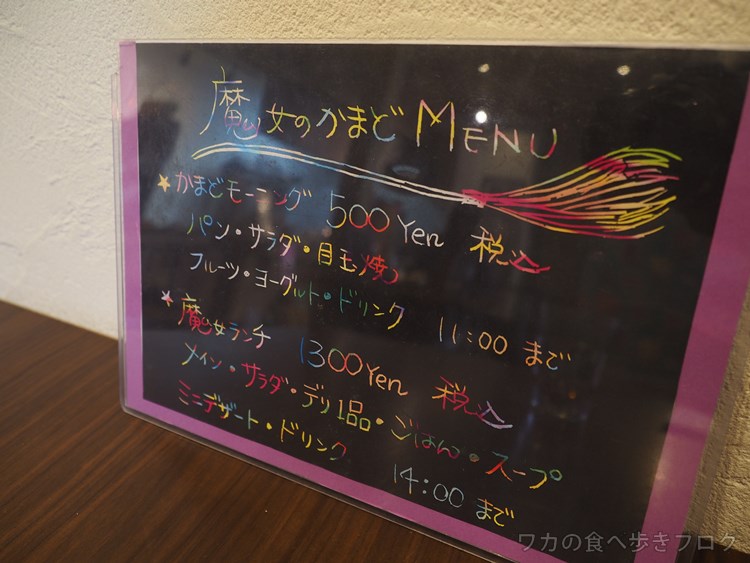 魔女のかまど MENU
★かまどモーニング 500Yen 税込
パン・サラダ・目玉焼き
フルーツ・ヨーグルト・ドリンク 11:00 まで
★魔女ランチ 1300Yen 税込
メイン・サラダ・デリ1品・ごはん・スープ
ミニデザート・ドリンク 14:00 まで
ワカの食べ歩きブログ